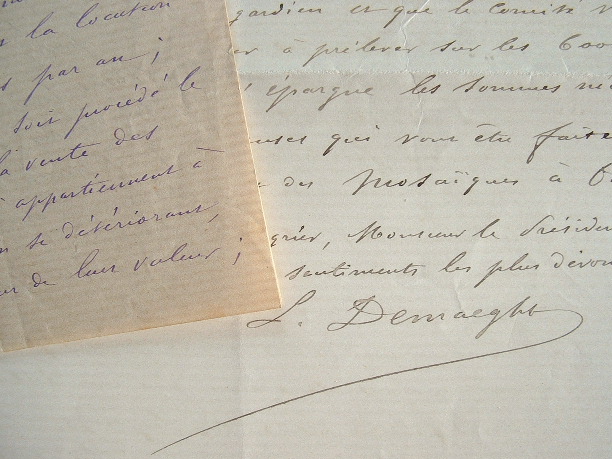 la location
par an ;
soit procédé le
la vente des
appartiennent à
se détériorant,
de leur valeur ;
gardien et que le Comité
à prélever sur les 600
épargne les sommes
qui vont être faites
des mosaïques à
Monsieur le Présiden
sentiments les plus dévou
L. Demaeght